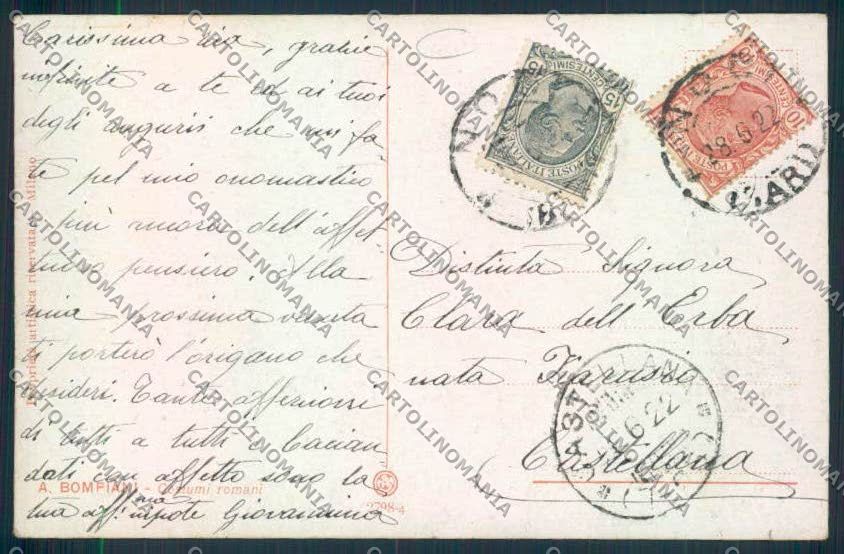 Carissima zia, grazie
infinite a te ed ai tuoi
degli augurii che mi fa-
te pel mio onomastico
e più ancora dell'affet-
tuoso pensiero. Alla
mia prossima venuta
ti porterò l'origano che
desideri. Tante affezioni
di tutti a tutti e bacian
doti con affetto sono la
tua aff.ma nipote Giovannina
A. BOMPIANI - Costumi romani
2798-4
Proprietà artistica riservata
Milano
15 CENTESIMI 15
POSTE ITALIANE
10 CENTESIMI 10
POSTE ITALIANE
18.6.22
BARI
Distinta Signora
Clara dell'Erba
nata
Castellana
CASTELLANA
6.22
CARTOLINOMANIA